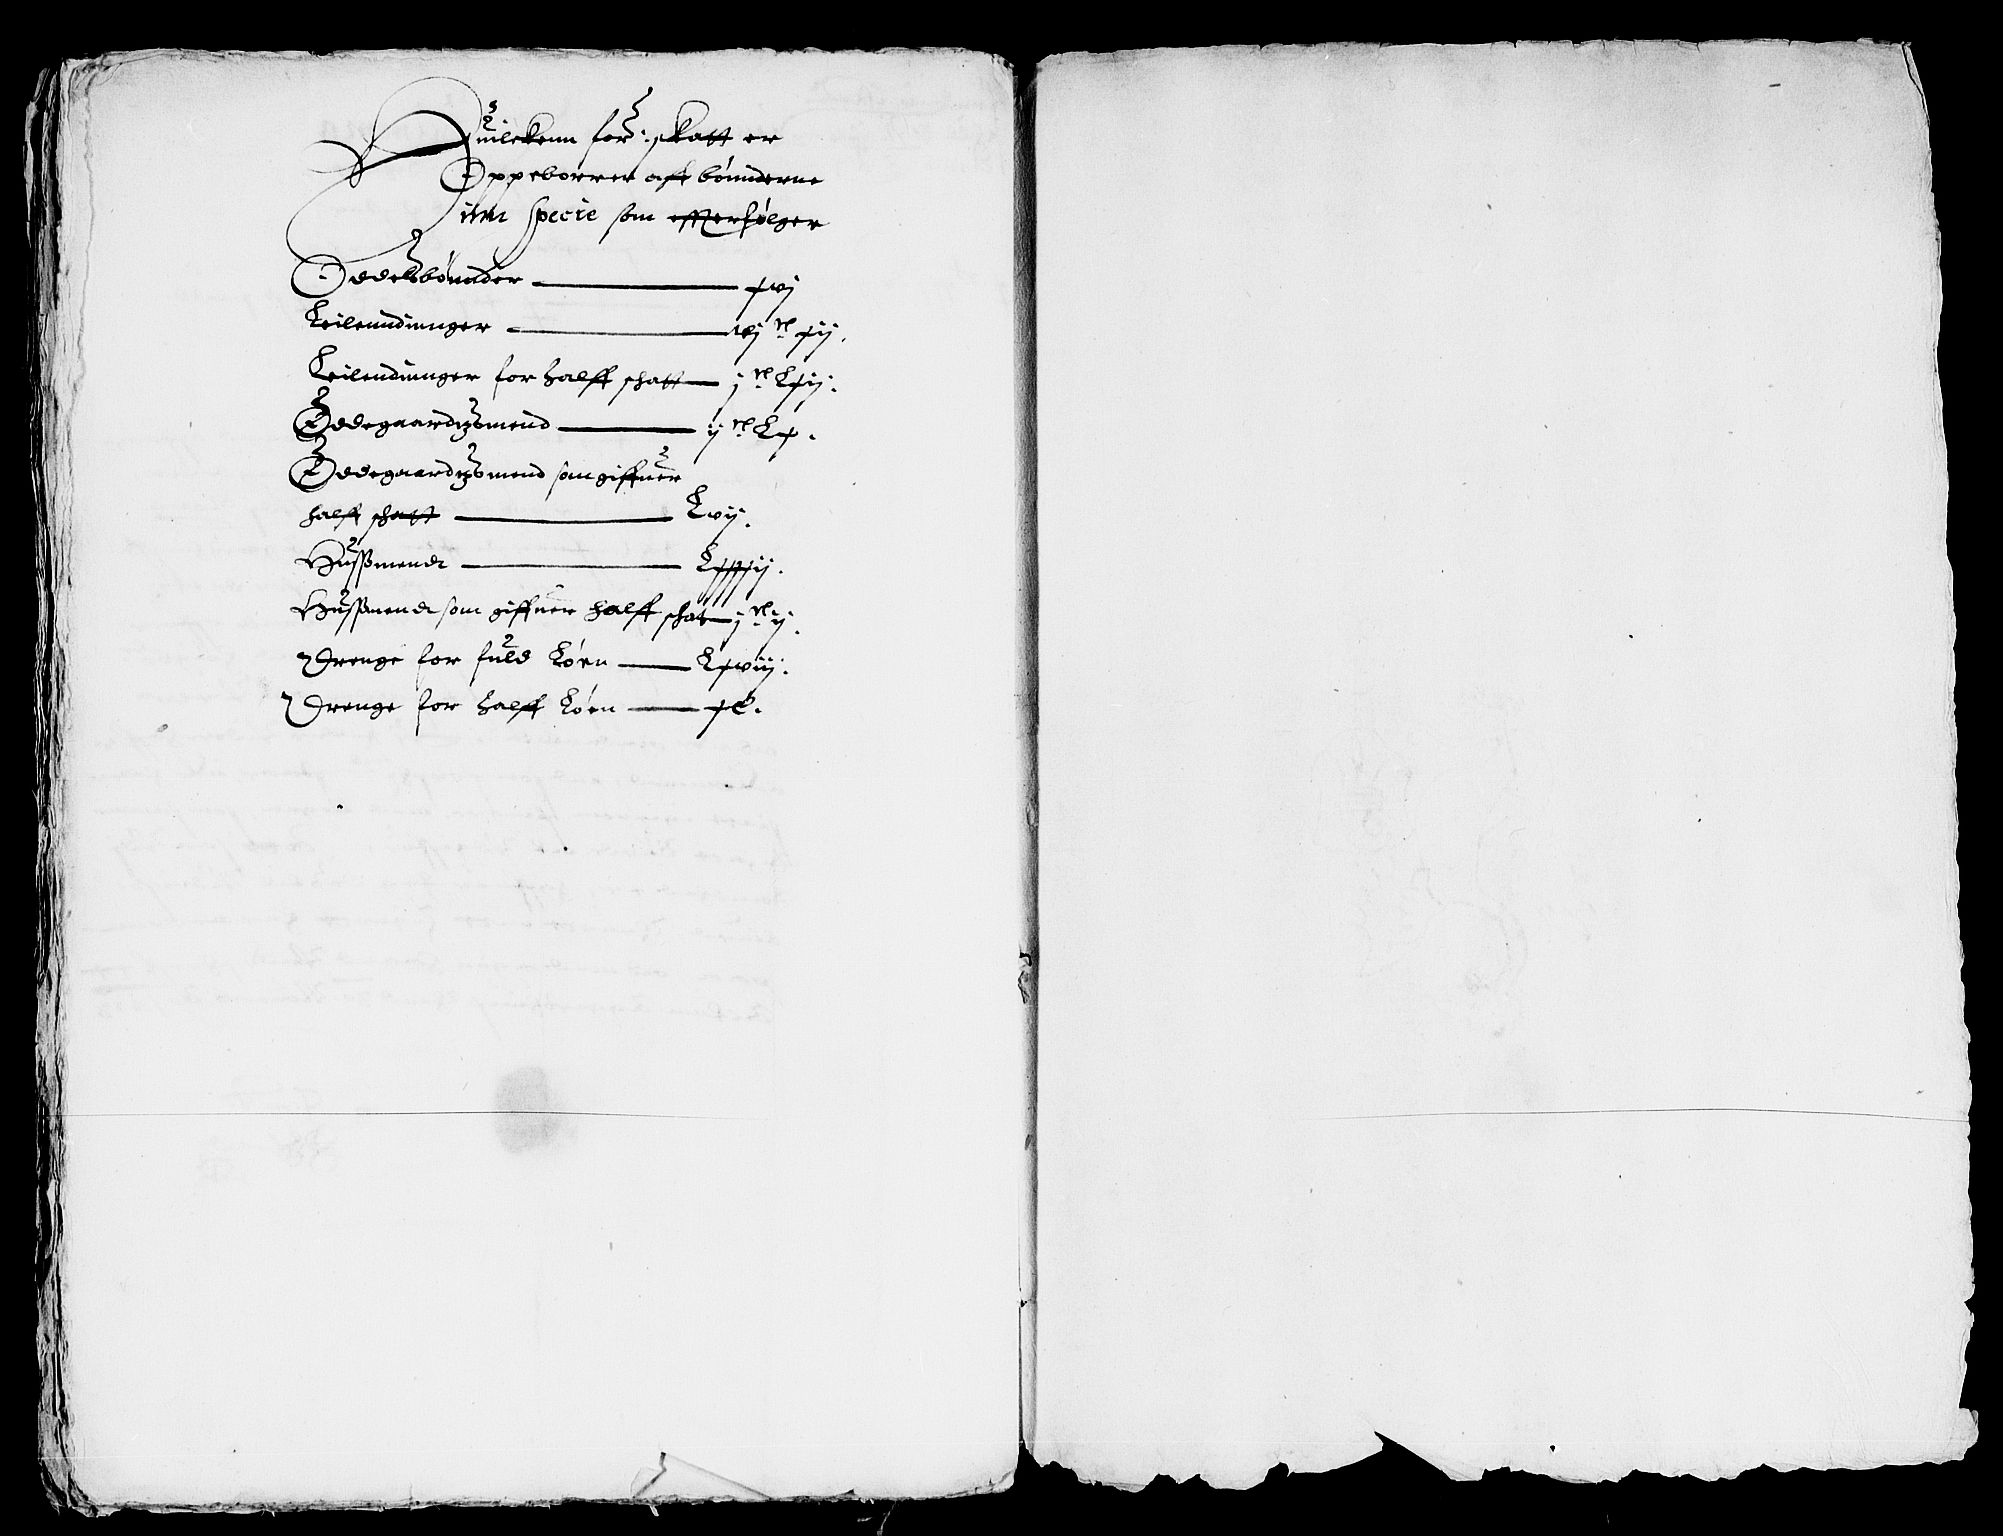 Huilckenn for: skatt er
Oppeborren aff bønnderne
inn Specie som effterfølger
Odelsbønnder — xvj
Leilenndinnger — vj c xij.
Leilendinnger for halff schatt — j c Lxij.
Ødegaardtzmend — ij c Lx.
Ødegaardtzmend som giffuer
halff schatt — Lvij.
Hussmendt — Lxxxij.
Hussmendt som giffuer halff schat — j c ij.
Drenge for fuld Løen — Lxviij.
Drenge for halff Løen — xL.